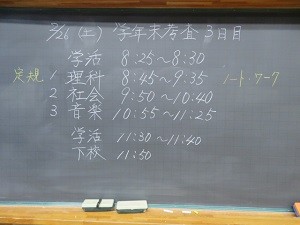 2/26 (土) 学年末考査 3日目
学活 8:25〜8:30
定規 1 理科 8:45〜9:35 ノート・ワーク
2 社会 9:50〜10:40
3 音楽 10:55〜11:25
学活 11:30〜11:40
下校 11:50